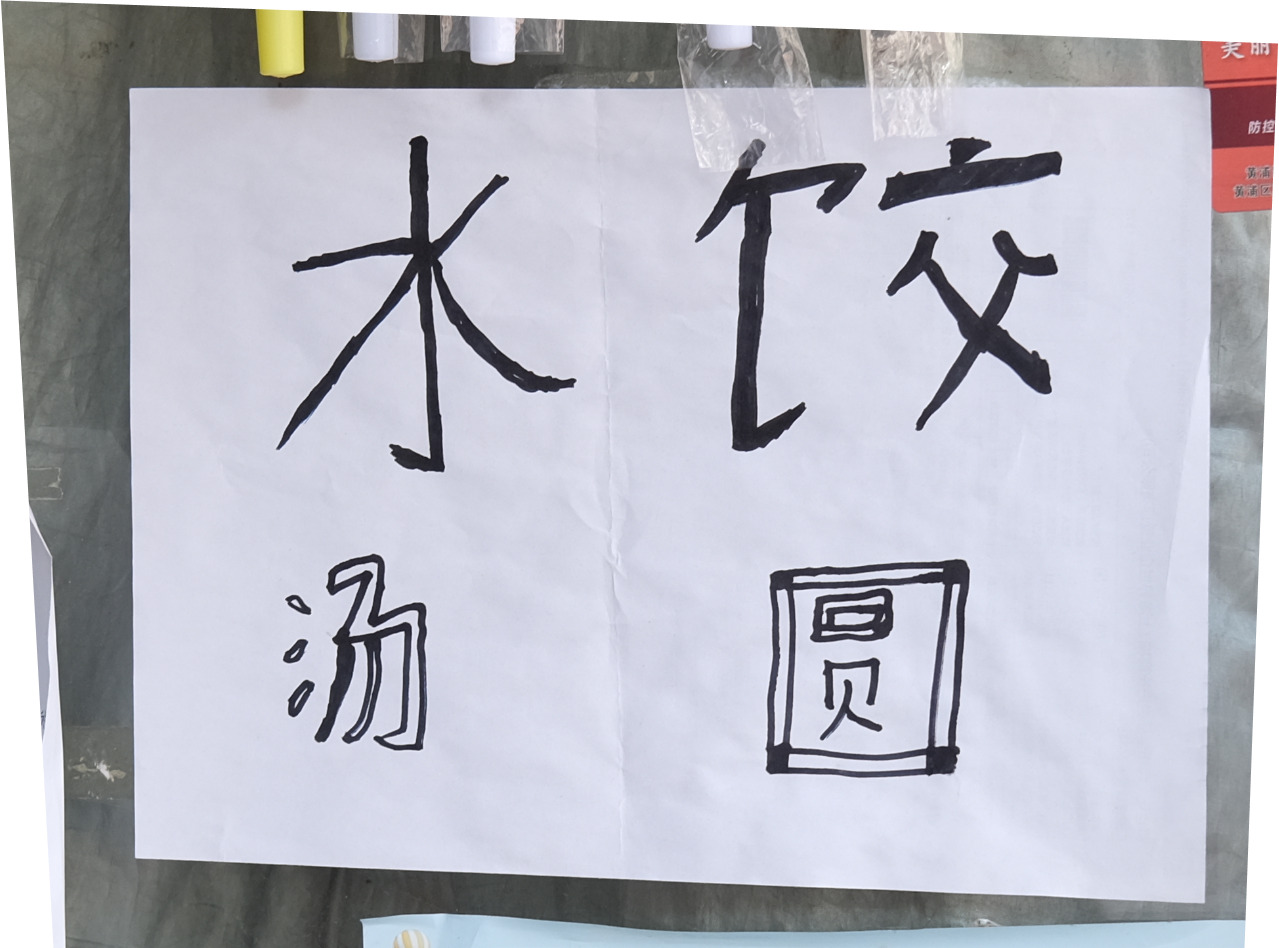 水饺
汤圆
美丽
防控
黄浦
黄浦区